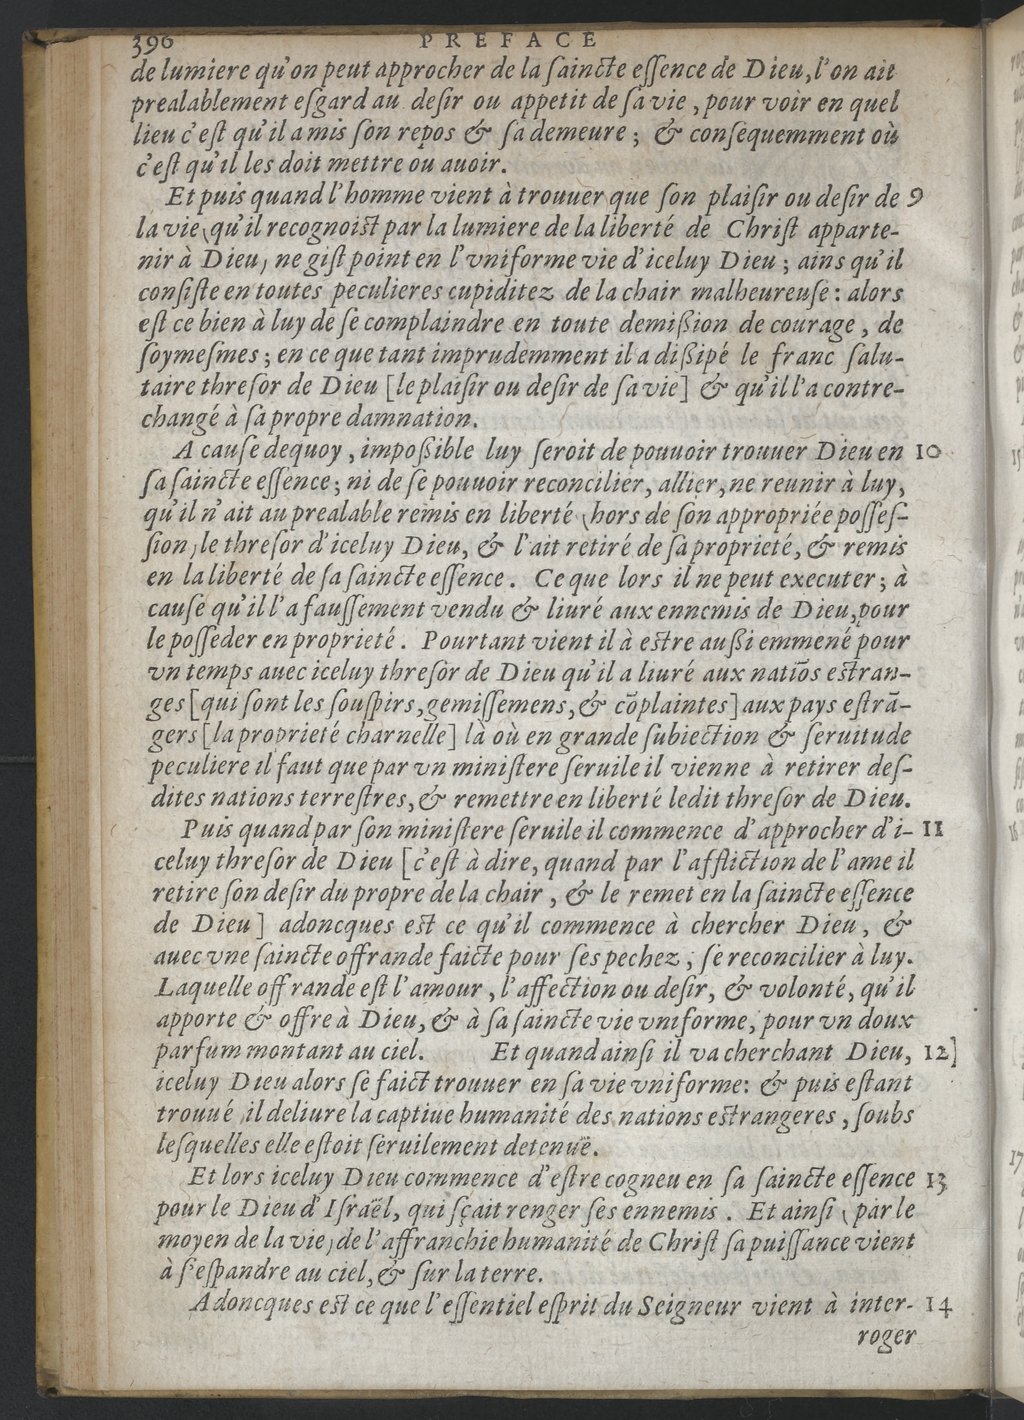 396 PREFACE
de lumiere qu'on peut approcher de la ſaincte eſſence de Dieu, l'on ait
prealablement eſgard au deſir ou appetit de ſa vie, pour voir en quel
lieu c'eſt qu'il a mis ſon repos & ſa demeure; & conſequemment où
c'eſt qu'il les doit mettre ou auoir.
Et puis quand l'homme vient à trouuer que ſon plaiſir ou deſir de 9
la vie (qu'il recognoiſt par la lumiere de la liberté de Chriſt apparte-
nir à Dieu) ne giſt point en l'vniforme vie d'iceluy Dieu; ains qu'il
conſiſte en toutes peculieres cupiditez de la chair malheureuſe: alors
eſt ce bien à luy de ſe complaindre en toute demiſsion de courage, de
ſoymeſmes; en ce que tant imprudemment il a diſsipé le franc ſalu-
taire threſor de Dieu [le plaiſir ou deſir de ſa vie] & qu'il l'a contre-
changé à ſa propre damnation.
A cauſe dequoy, impoſsible luy ſeroit de pouuoir trouuer Dieu en 10
ſa ſaincte eſſence; ni de ſe pouuoir reconcilier, allier, ne reunir à luy,
qu'il n'ait au prealable remis en liberté (hors de ſon appropriée poſſeſ-
ſion) le threſor d'iceluy Dieu, & l'ait retiré de ſa proprieté, & remis
en la liberté de ſa ſaincte eſſence. Ce que lors il ne peut executer; à
cauſe qu'il l'a fauſſement vendu & liuré aux ennemis de Dieu, pour
le poſſeder en proprieté. Pourtant vient il à eſtre auſsi emmené pour
vn temps auec iceluy threſor de Dieu qu'il a liuré aux natiōs eſtran-
ges [qui ſont les ſouſpirs, gemiſſemens, & cōplaintes] aux pays eſtrā-
gers [la proprieté charnelle] là où en grande ſubiection & ſeruitude
peculiere il faut que par vn miniſtere ſeruile il vienne à retirer deſ-
dites nations terreſtres, & remettre en liberté ledit threſor de Dieu.
Puis quand par ſon miniſtere ſeruile il commence d'approcher d'i- 11
celuy threſor de Dieu [c'eſt à dire, quand par l'affliction de l'ame il
retire ſon deſir du propre de la chair, & le remet en la ſaincte eſſence
de Dieu] adoncques eſt ce qu'il commence à chercher Dieu, &
auec vne ſaincte offrande faicte pour ſes pechez, ſe reconcilier à luy.
Laquelle offrande eſt l'amour, l'affection ou deſir, & volonté, qu'il
apporte & offre à Dieu, & à ſa ſaincte vie vniforme, pour vn doux
parfum montant au ciel. Et quand ainſi il va cherchant Dieu, 12]
iceluy Dieu alors ſe faict trouuer en ſa vie vniforme: & puis eſtant
trouué, il deliure la captiue humanité des nations eſtrangeres, ſoubs
leſquelles elle eſtoit ſeruilement detenuë.
Et lors iceluy Dieu commence d'eſtre cogneu en ſa ſaincte eſſence 13
pour le Dieu d'Iſraël, qui ſçait renger ſes ennemis. Et ainſi (par le
moyen de la vie) de l'affranchie humanité de Chriſt ſa puiſſance vient
à s'eſpandre au ciel, & ſur la terre.
Adoncques eſt ce que l'eſſentiel eſprit du Seigneur vient à inter- 14
roger